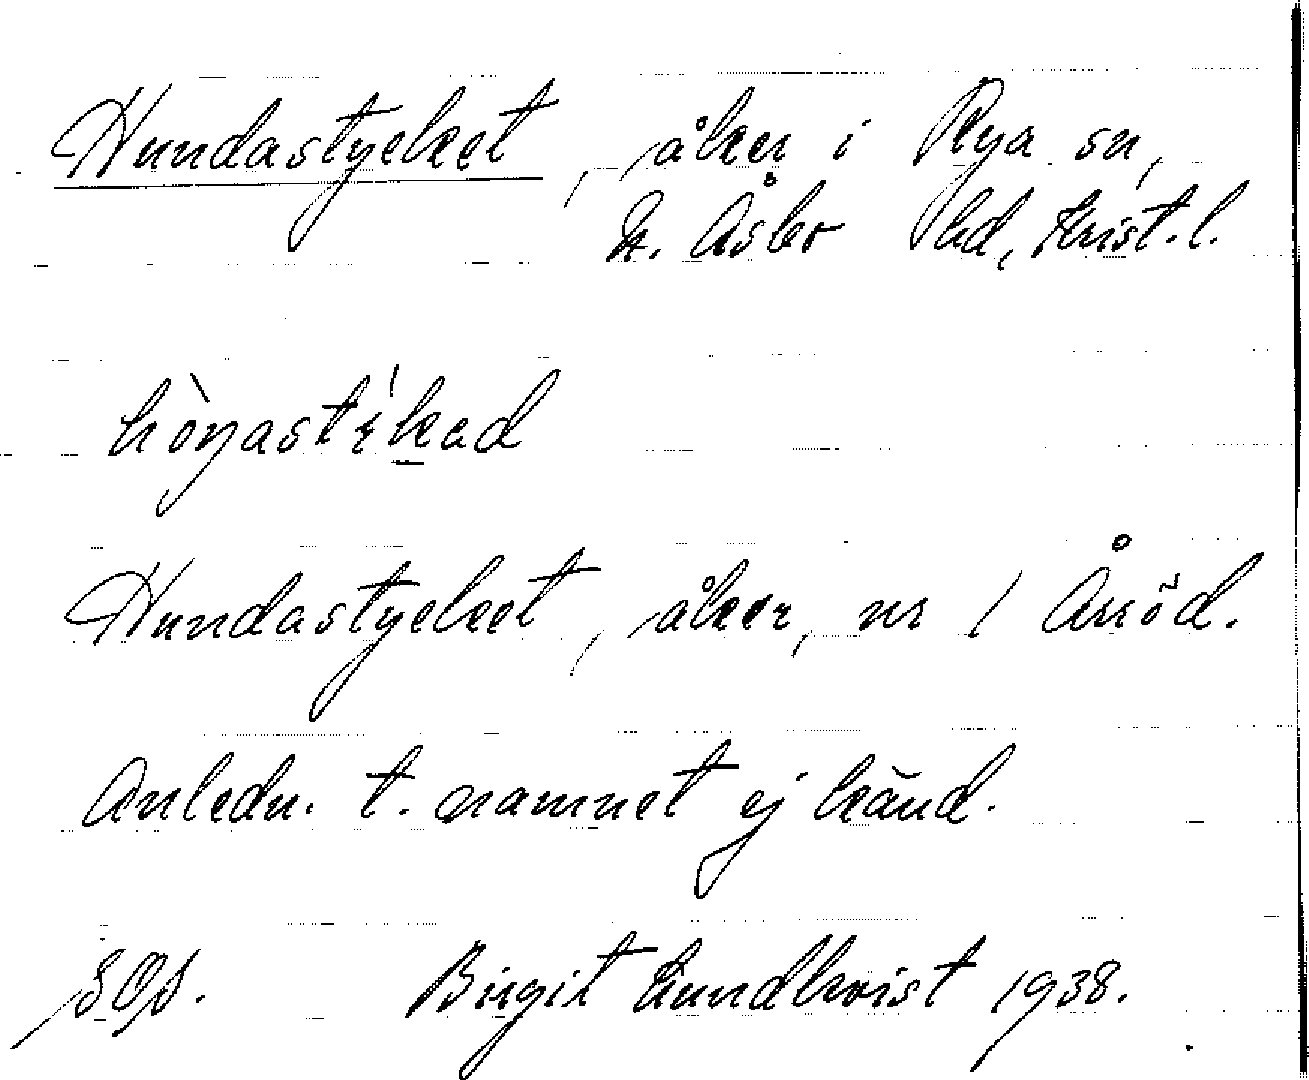 Hundastycket, åker i Rya sn,
N. Åsbo hd, Krist. l.
Hundastycket, åker, nr 1 Årröd.
Anledn. t. namnet ej känd.
Birgit Lundkvist 1938.